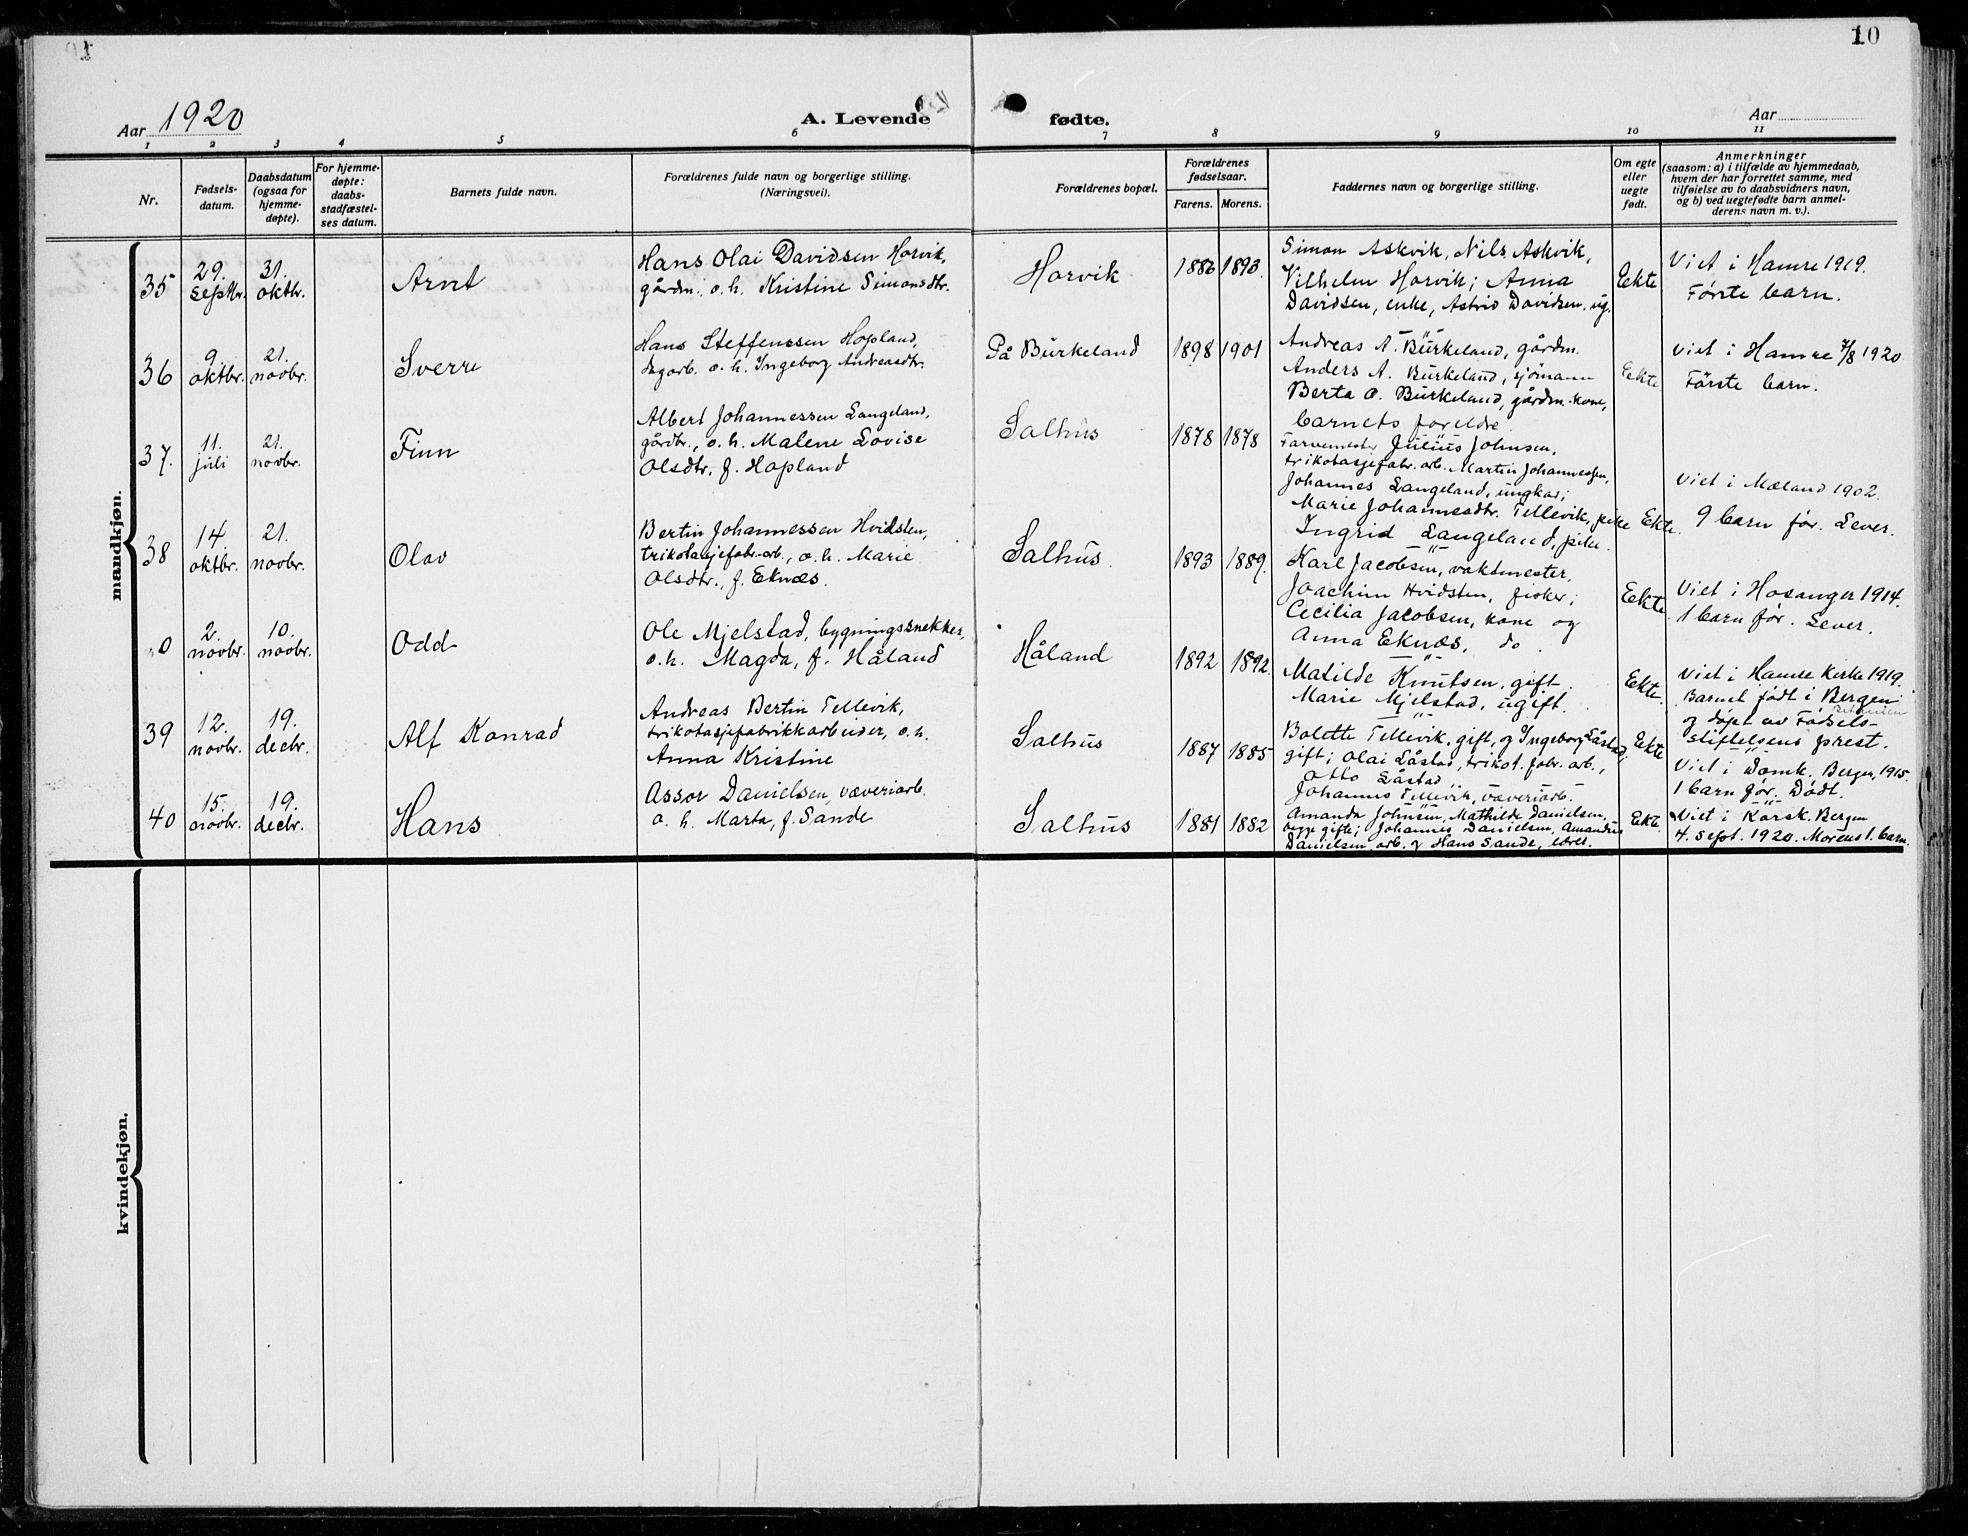 10
Aar 1920
A. Levende fødte.
Aar
1 2 3 4 5 6 7 8 9 10 11
Nr.
Fødsels-
datum.
Daabsdatum
(ogsaa for
hjemme-
døpte).
For hjemme-
døpte:
daabs-
stadfæstel-
ses datum.
Barnets fulde navn.
Forældrenes fulde navn og borgerlige stilling.
(Næringsvei).
Forældrenes bopæl.
Forældrenes
fødselsaar.
Farens. Morens.
Faddernes navn og borgerlige stilling.
Om egte
eller
uegte
født.
Anmerkninger
(saasom: a) i tilfælde av hjemmedaab,
hvem der har forrettet samme, med
tilføielse av to daabsvidners navn,
og b) ved uegtefødte barn anmel-
derens navn m. v.).
mandkjøn.
35
29.
septbr.
31.
oktbr.
Arnt
Hans Olai Davidsen Horvik,
gårdm., o. h. Kristine Simonsdtr.
Horvik
1886 1893.
Simon Askvik, Nils Askvik,
Vilhelm Horvik; Anna
Davidsen, enke, Astrid Davidsen, ug.
Eekte
Viet i Hamre 1919.
Første barn.
36
9.
oktbr.
21.
novbr.
Sverre
Hans Steffenssen Hopland,
o. h. Ingeborg Andreasdtr.
På Bürkeland
1898 1901
Andreas A. Bürkeland, gårdm.
Anders A. Bürkeland, sjømann
Berta O. Bürkeland, gårdm. kone,
barnets foreldre
Eekte
Viet i Hamre 7/8 1920
Første barn.
37.
11.
juli
21.
novbr.
Finn
Albert Johannessen Langeland,
gårdbr., o. h. Malene Lovise
Olsdtr. f. Hopland
Salhüs
1878 1878
Farvemester Julius Johnsen,
trikotasjefabr. arb. Martin Johannessen,
Johannes Langeland, ungkar;
Marie Johannesdtr. Tellevik, pike
Ingrid Langeland, pike.
Ekte
Viet i Mæland 1902.
9 barn før. Lever.
38
14.
oktbr.
21.
novbr.
Olav
Bertin Johannessen Hvidsten,
trikotasjefabr.-arb., o. h. Marie
Olsdtr., f. Eknæs.
Salhüs.
1893 1889.
Karl Jacobsen, vaktmester,
Joachim Hvidsten, fisker;
Cecilia Jacobsen, kone og
Anna Eknæs, do.
Eekte
Viet i Hosanger 1914.
1 barn før. Lever.
0
2.
novbr.
10.
novbr.
Odd
Ole Mjelstad, bygningssnekker,
o. h. Magda, f. Håland
Håland
1892 1892
Matilde Knutsen, gift.
Marie Mjelstad, ugift.
Eekte.
Viet i Hamre Kirke 1919.
Barnet født i Bergen
og døpt av Fødsels-
stiftelsens prest.
39
12.
novbr.
19.
decbr.
Alf Konrad
Andreas Bertin Tellevik,
trikotasjefabrikkarbeider, o. h.
Anna Kristine
Salhüs
1887 1885
Bolette Tellevik, gift, og Ingeborg Låstad,
gift; Olai Låstad, trikot. fabr. arb.,
Otto Låstad
Johannes Tellevik, væveriarb.
Eekte
Viet i Domk. Bergen, 1915.
1 barn før. Dødt.
40
15.
novbr.
19.
decbr.
Hans
Assor Danielsen, væveriarb.
o. h. Marta, f. Sande
Salhüs
1881 1882
Amanda Johnsen, Mathilde Danielsen,
begge gifte; Johannes Danielsen, Amandus
Danielsen, arb. og Hans Sande, lærer.
Ekte.
Viet i Korsk. Bergen
4. Sept. 1920. Morens 1. barn.
kvindekjøn.